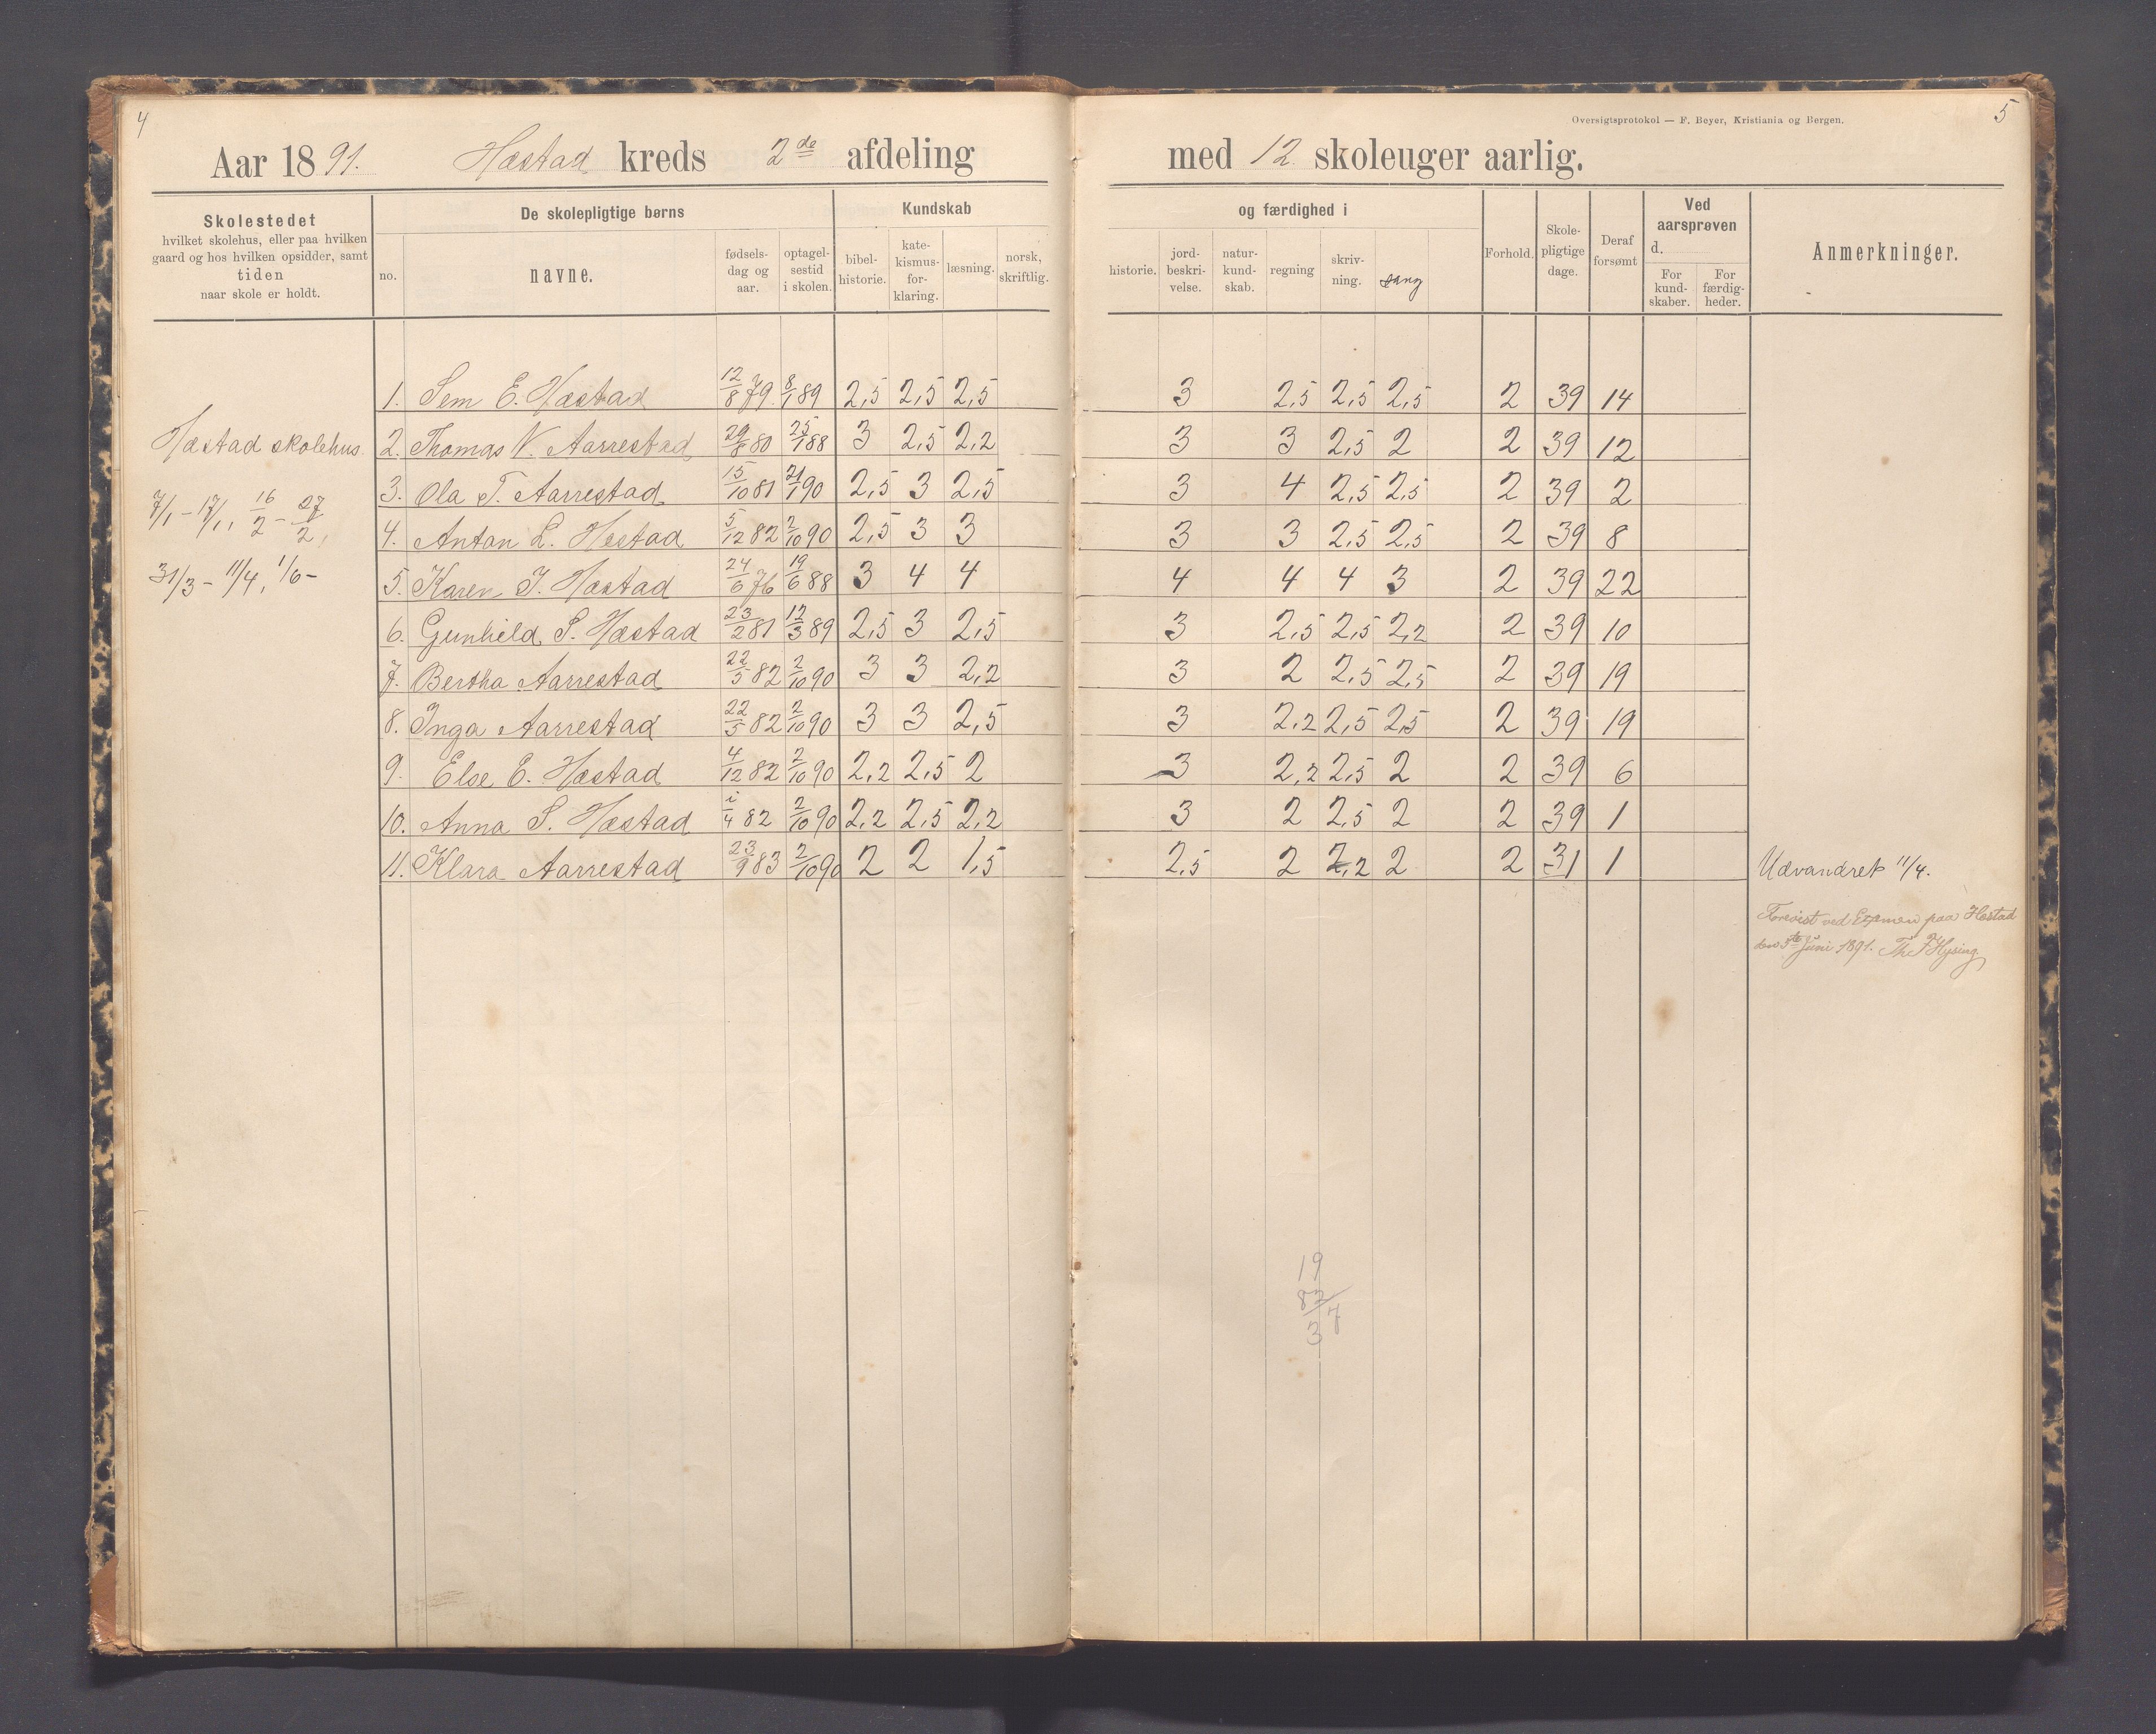 4
Aar 1891. Hæstad kreds 2de afdeling
Skolestedet
hvilket skolehus, eller paa hvilken
gaard og hos hvilken opsidder, samt
tiden
naar skole er holdt.
De skolepligtige børns
no.
navne.
fødsels-
dag og
aar.
optagel-
sestid
i skolen.
Kundskab
bibel-
historie.
kate-
kismus-
for-
klaring.
læsning.
norsk,
skriftlig.
Hæstad skolehus.
7/1 - 17/1, 16/2 - 27/2,
31/3 - 11/4, 1/6 -
1. Sem E. Hæstad 12/8 79 8/1 89 2,5 2,5 2,5
2. Thomas V. Aarrestad 29/8 80 25/1 88 3 2,5 2,2
3. Ola T. Aarrestad 15/10 81 21/1 90 2,5 3 2,5
4. Anton L. Hestad 5/12 82 2/10 90 2,5 3 3
5. Karen J. Hæstad 24/6 76 19/6 88 3 4 4
6. Gunhild S. Hæstad 23/2 81 12/3 89 2,5 3 2,5
7. Bertha Aarrestad 22/5 82 2/10 90 3 3 2,2
8. Inga Aarrestad 22/5 82 2/10 90 3 3 2,5
9. Else E. Hæstad 4/12 82 2/10 90 2,2 2,5 2
10. Anna S. Hæstad 1/4 82 2/10 90 2,2 2,5 2,2
11. Klara Aarrestad 23/9 83 2/10 90 2 2 1,5
Oversigtsprotokol — F. Beyer, Kristiania og Bergen.
5
med 12 skoleuger aarlig.
og færdighed i
historie.
jord-
beskri-
velse.
natur-
kund-
skab.
regning
skriv-
ning.
sang
Forhold.
Skole-
pligtige
dage.
Deraf
forsømt
Ved
aarsprøven
d.
For
kund-
skaber.
For
færdig-
heder.
Anmerkninger.
3 2,5 2,5 2,5 2 39 14
3 3 2,5 2 2 39 12
3 4 2,5 2,5 2 39 2
3 3 2,5 2,5 2 39 8
4 4 4 3 2 39 22
3 2,5 2,5 2,2 2 39 10
3 2 2,5 2,5 2 39 19
3 2,2 2,5 2,5 2 39 19
3 2,2 2,5 2 2 39 6
3 2 2,5 2 2 39 1
2,5 2 2,2 2 2 31 1 Udvandret 11/4.
Forevist ved Examen paa Hestad
den 3te Juni 1891. Th. F Hysing
19
83/7
3